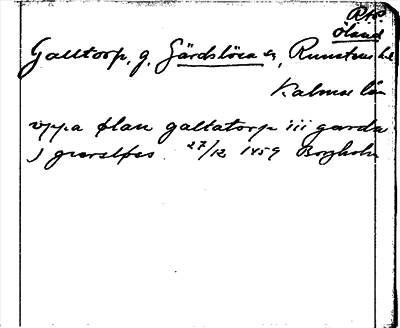 Öland
Galltorp, g. Gärdslösa sn, Runstens hd
Kalmar län
vppa øland galtatorp iii garda
J 27/12 1459 Borgholm